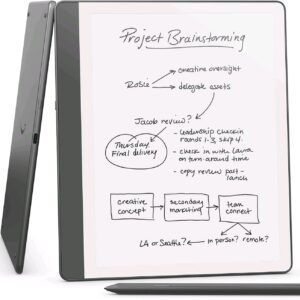 Project Brainstorming
creative oversight
Rosie
delegate assets
Jacob review?
- leadership checkin
rounds 1-3, skip 4.
Thursday
Final delivery
- check in with Laura
on turn around time
- copy review post-
launch
creative
concept
secondary
marketing
team
connect
LA or Seattle?
in person? remote?